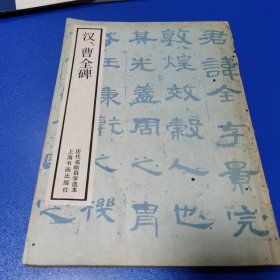 汉、曹全碑
历代名帖自学选本
上海书画出版社
君諱全字景完
敦煌效穀人也
其先蓋周之胄
王秉乾之機